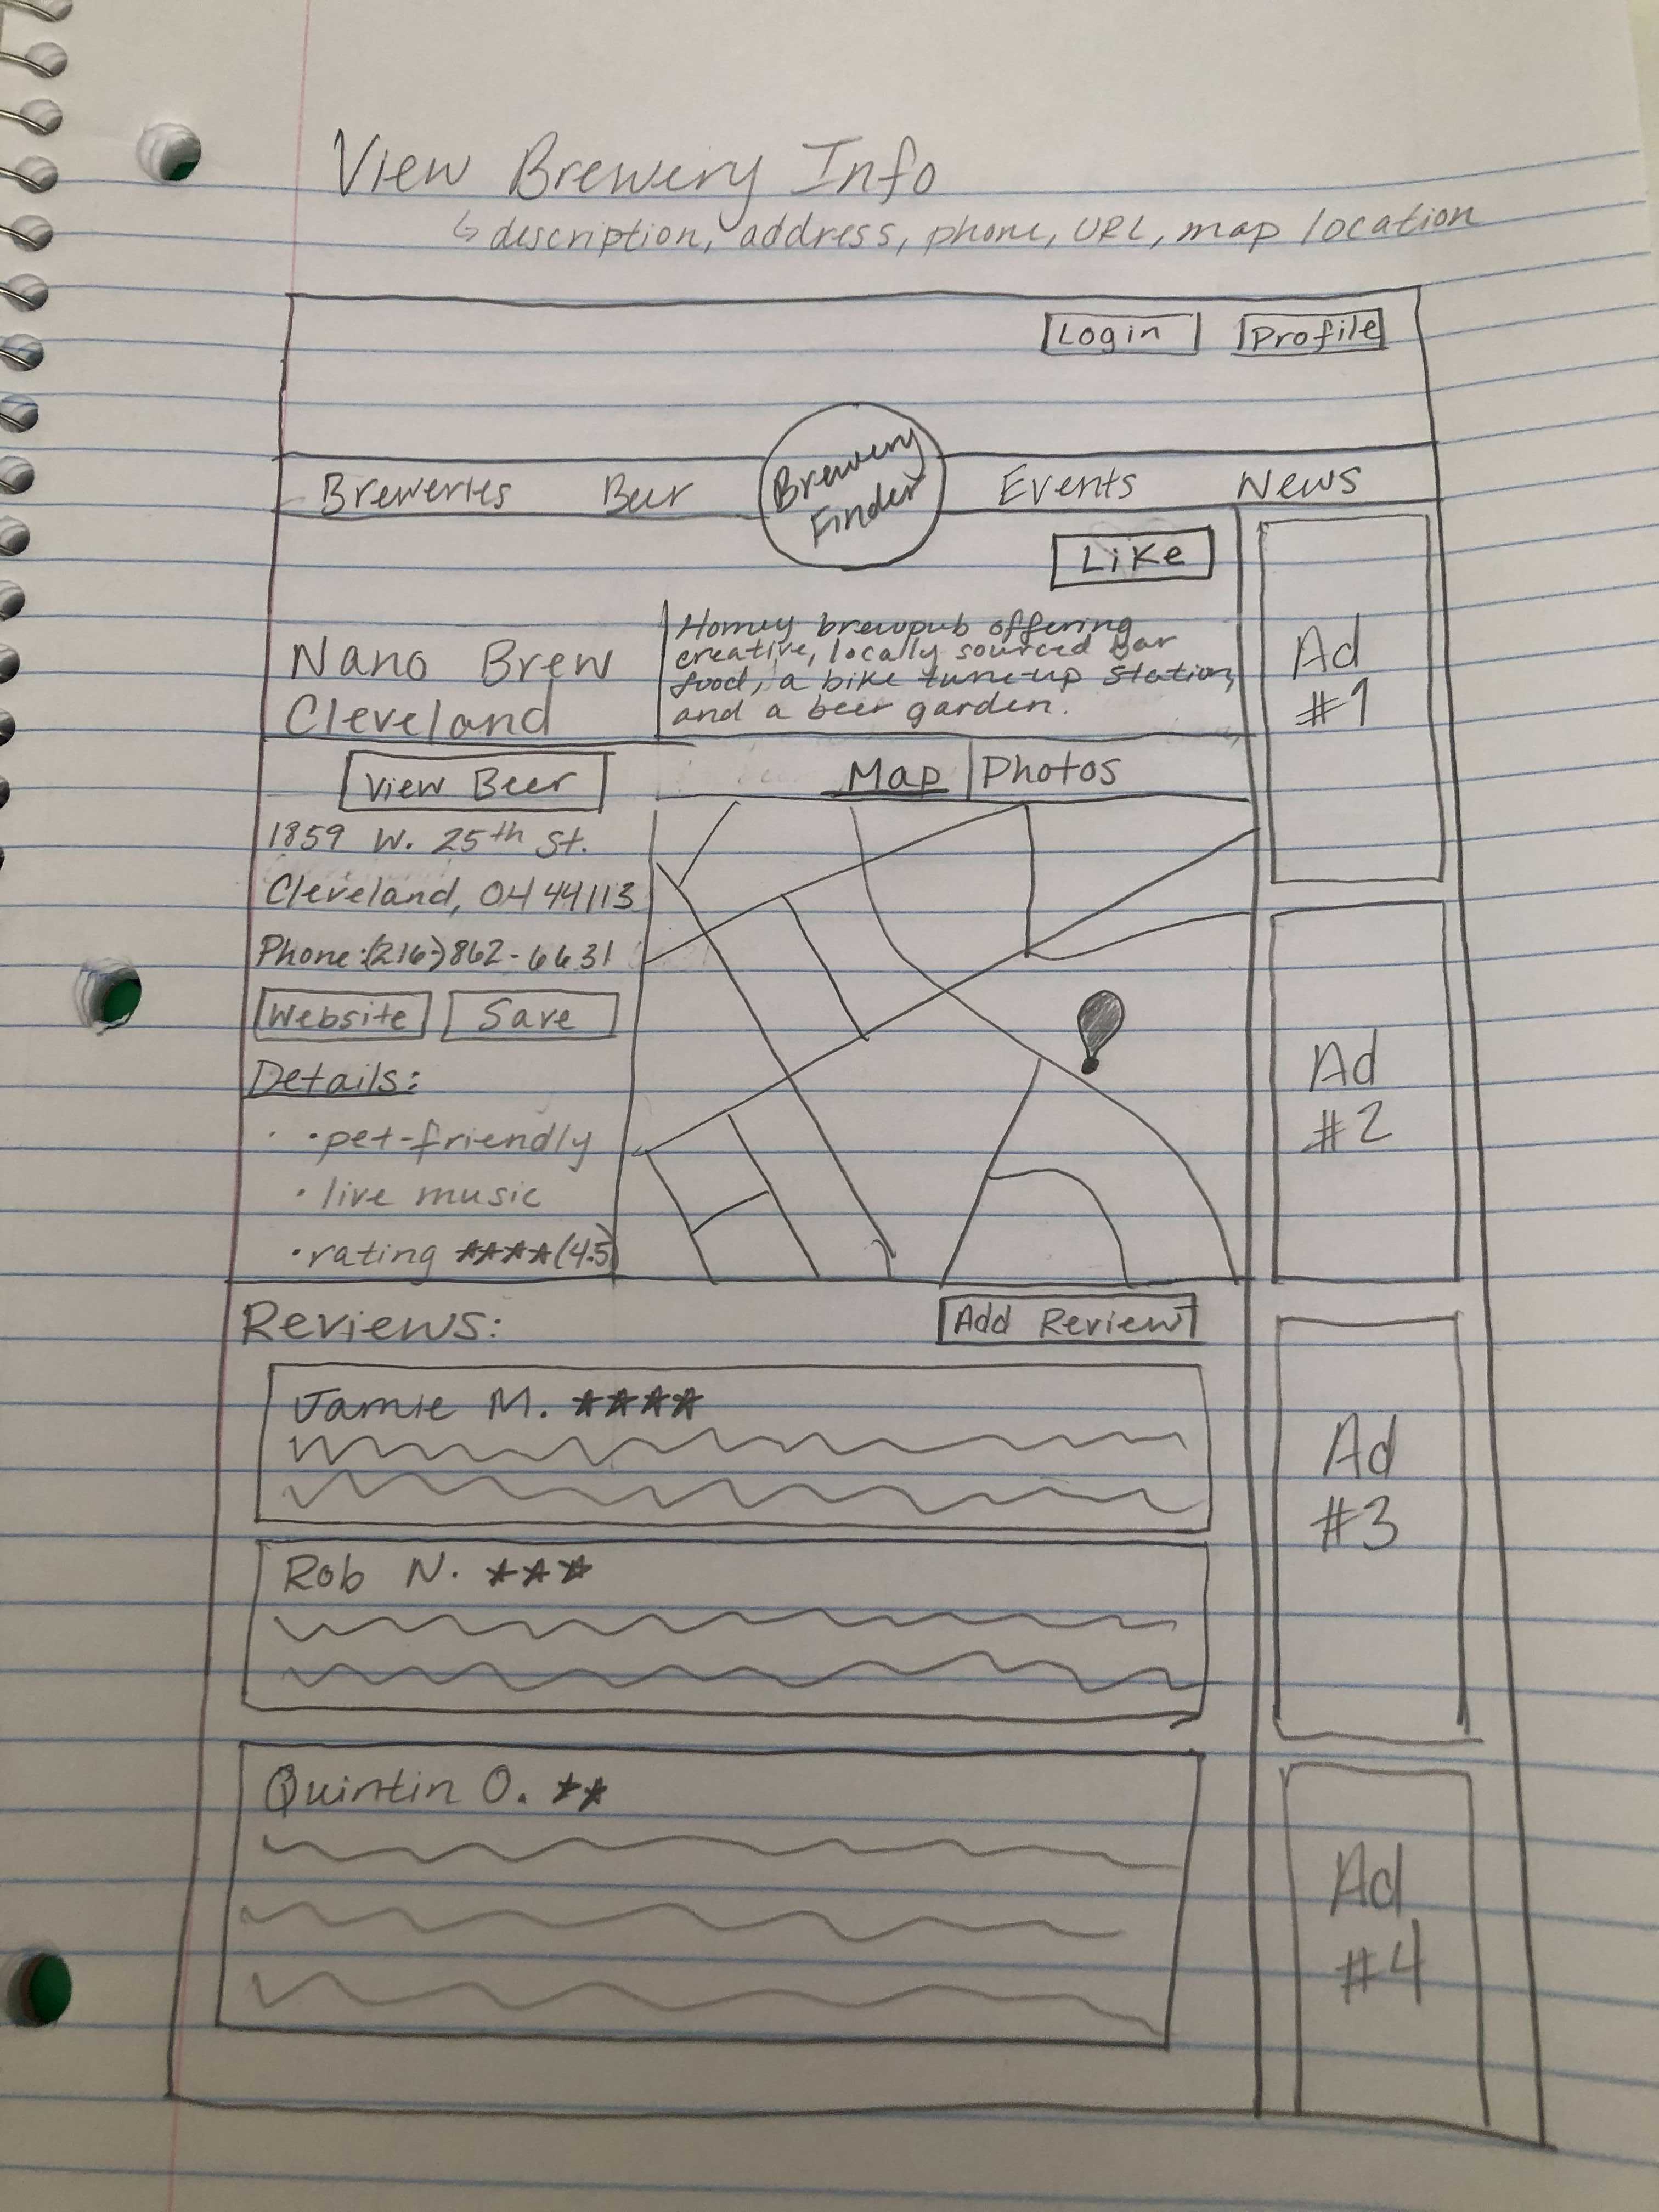 View Brewery Info
↳ description, address, phone, URL, map location
Login
Profile
Breweries
Beer
Brewery
Finder
Events
News
Like
Nano Brew
Cleveland
Homey brewpub offering
creative, locally sourced bar
food, a bike tune-up station,
and a beer garden.
View Beer
Map | Photos
1859 W. 25th St.
Cleveland, OH 44113
Phone: (216) 862-6631
Website
Save
Details:
• pet-friendly
• live music
• rating ★★★★ (4.5)
Reviews:
Add Review
Jamie M. ★★★★
Rob N. ★★★
Quintin O. ★★
Ad
#1
Ad
#2
Ad
#3
Ad
#4